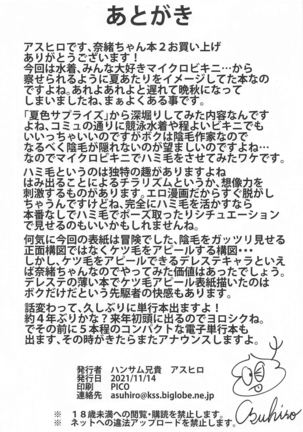 あとがき
アスヒロです、奈緒ちゃん本２お買い上げ
ありがとうございます！
今回は水着、みんな大好きマイクロビキニ…から
察せられるように夏あたりをイメージしてた本なの
ですよね。あれよあれよと遅れて晩秋になって
しまいましたね、まぁよくある事です。
「夏色サプライズ」から深堀りしてみた内容なんです
よね、コミュの通りに競泳水着や程よいビキニでも
いいっちゃいいのですがボクは陰毛作家なので
なるべく陰毛が隠れないのが望ましいのですよね…
なのでマイクロビキニでハミ毛をさせてみたワケです。
ハミ毛というのは独特の趣がありますよね
はみ出ることによるチラリズムというか、想像力を
刺激するものがあります。エロ漫画だからすぐ脱がし
ちゃうんですけどね、完全にハミ毛を活かすなら
本番なしでハミ毛でポーズ取ったりシチュエーション
で見せるのもいいかもしれませんね。
何気に今回の表紙は冒険でした、陰毛をガッツリ見せる
正面構図ではなくケツ毛をアピールする構図･･･
しかし、ケツ毛をアピールできるデレステキャラといえ
ば奈緒ちゃんなのでやってみた価値はあったでしょう。
デレステの薄い本でケツ毛アピール表紙描いたのは
ボクだけだという先駆者の快感もあります。
話変わって、久しぶりに単行本出ますよ！
約４年ぶりかな？来年初頭に出るのでヨロシクね。
でその前に５本程のコンパクトな電子単行本も
出ます、その時がきたらまたアナウンスしますよ。
発行者 ハンサム兄貴 アスヒロ
発行日 2021/11/14
印刷 PICO
連絡先 asuhiro@kss.biglobe.ne.jp
※ １８歳未満への閲覧・購読を禁じます。
※ ネットへの違法アップロードを禁じます。
Asuhiro